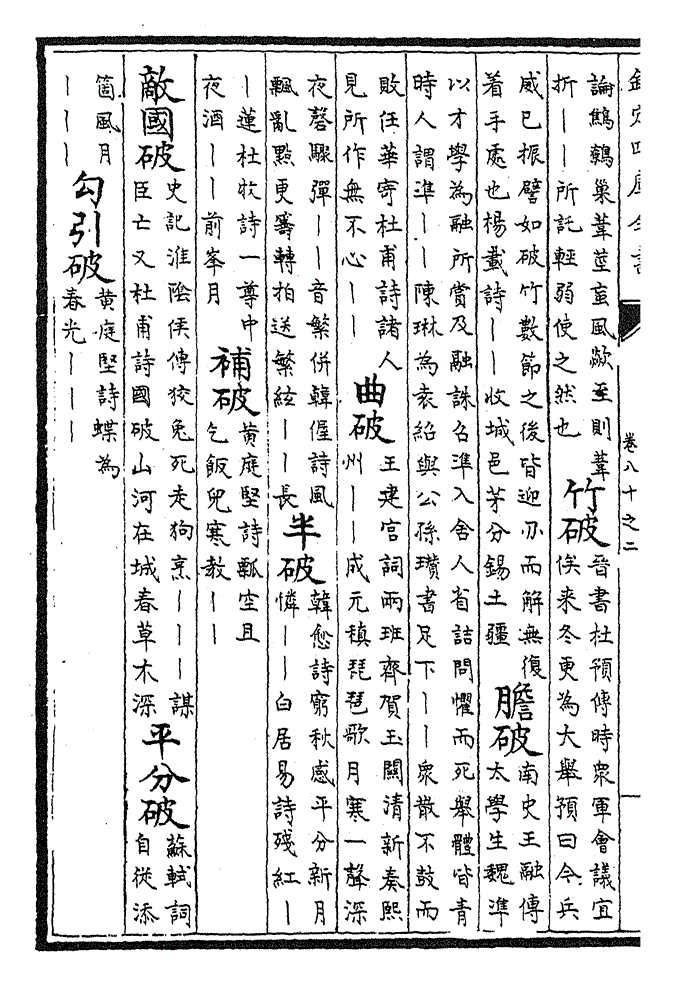 欽定四庫全書
卷八十之二
論鷦鷯巢葦莖蛮風歘至則葦
折丨丨所託輕弱使之然也
竹破
晉書杜預傳時衆軍會議宜
俟来冬更為大舉預曰今兵
威已振譬如破竹數節之後皆迎刃而解無復
着手處也楊載詩丨丨收城邑茅分錫土疆
膽破
南史王融傳
太學生魏準
以才學為融所賞及融誅召準入舍人省詰問懼而死舉體皆青
時人謂準丨丨陳琳為袁紹與公孫瓚書足下丨丨衆散不鼓而
敗任華寄杜甫詩諸人
見所作無不心丨丨
曲破
王建宫詞两班齊賀玉關清新奏熙
州丨丨成元稹琵琶歌月寒一聲深
夜磬驟彈丨丨音繁併韓偓詩風
飄亂㸃更籌轉拍送繁絃丨丨長
半破
韓愈詩窮秋感平分新月
憐丨丨白居易詩殘紅丨
丨蓮杜牧詩一尊中
夜酒丨丨前峯月
補破
黄庭堅詩瓢空且
乞飯兒寒教丨丨
敵國破
史記淮陰侯傳狡兔死走狗烹丨丨丨謀
臣亡又杜甫詩國破山河在城春草木深
平分破
蘇軾詞
自從添
箇風月
丨丨丨
勾引破
黄庭堅詩蝶為
春光丨丨丨